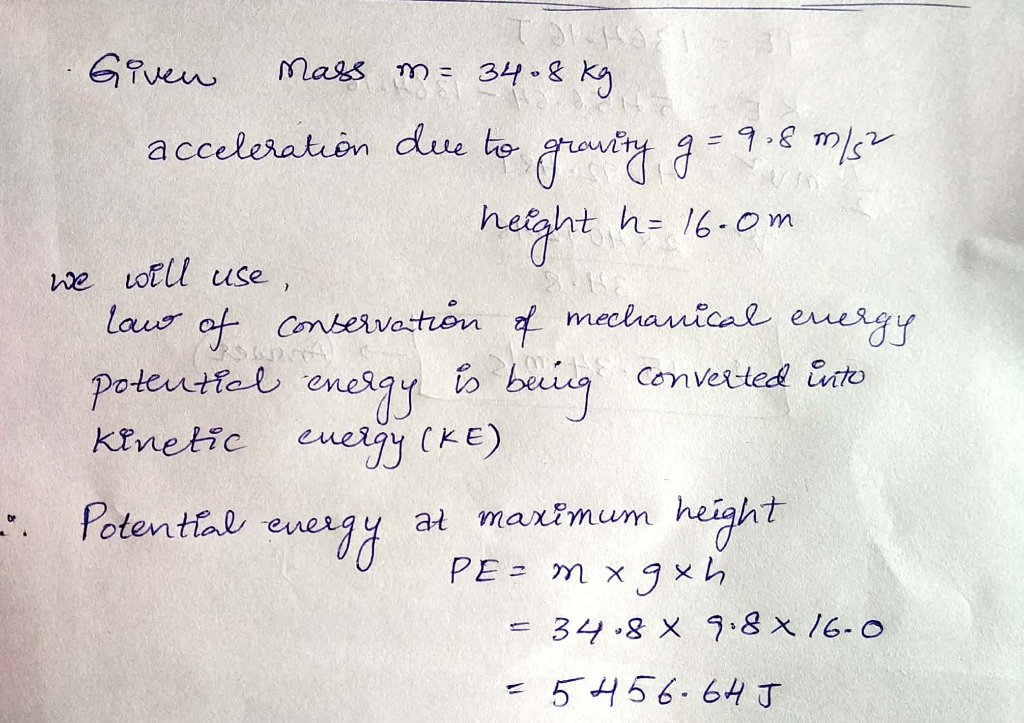 Given Mass m = 34.8 kg
acceleration due to gravity g = 9.8 m/s²
height h = 16.0 m
we will use,
law of conservation of mechanical energy
potential energy is being converted into
Kinetic energy (KE)
∴ Potential energy at maximum height
PE = m x g x h
= 34.8 x 9.8 x 16.0
= 5456.64 J